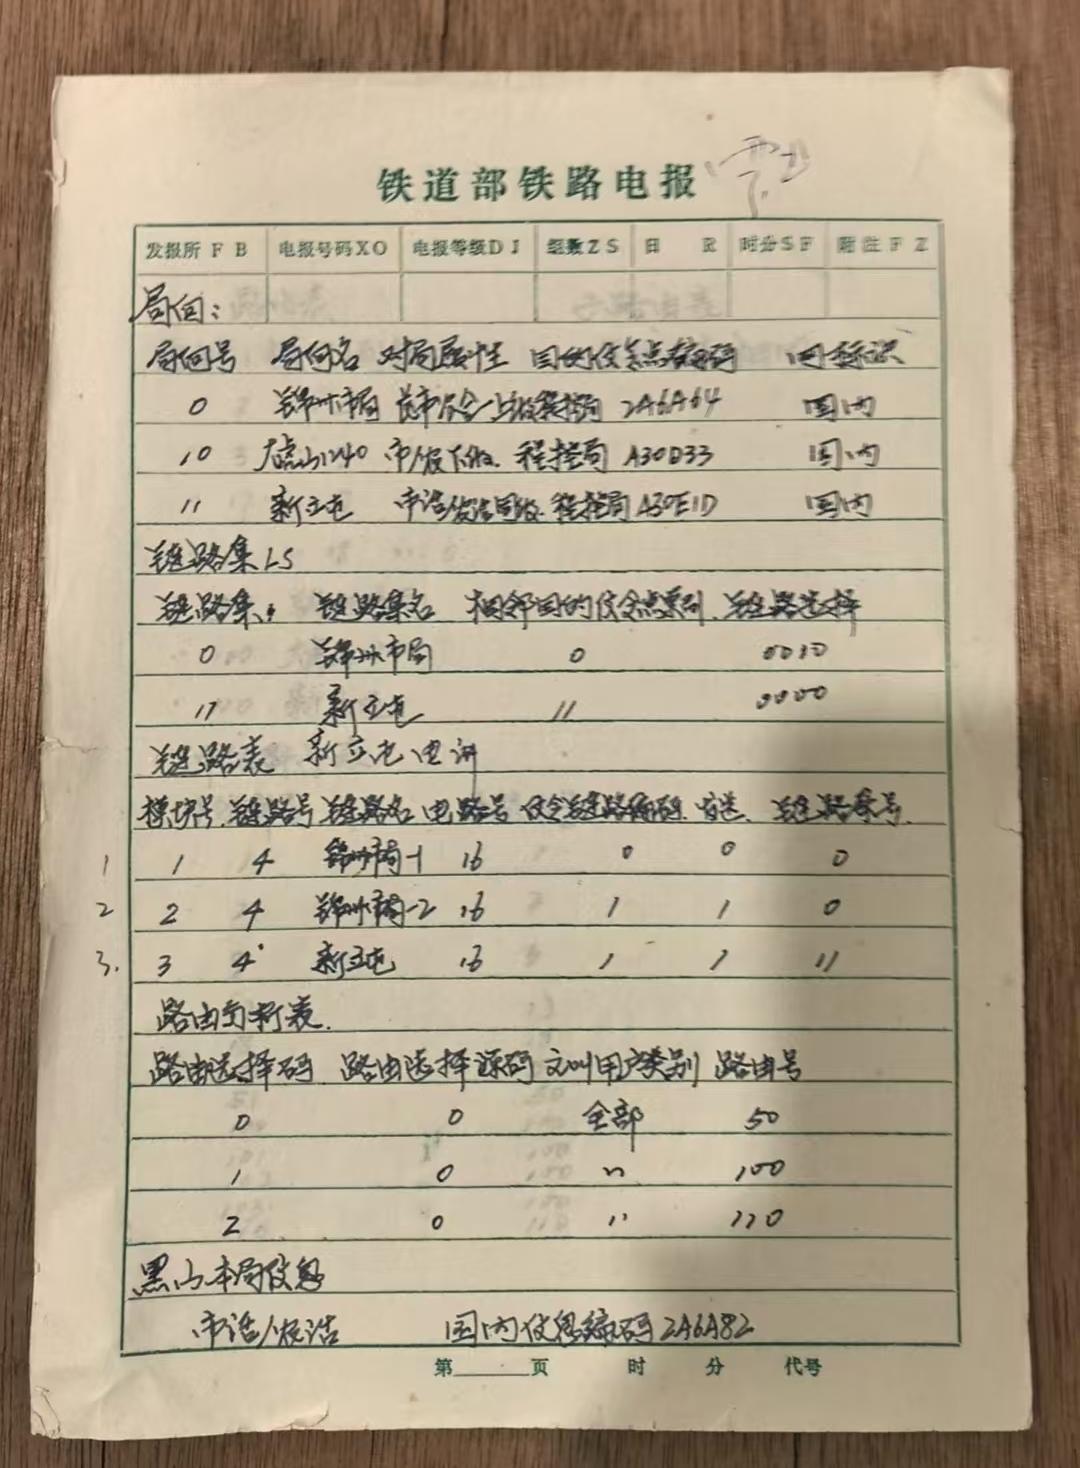 铁道部铁路电报
发报所 F B 电报号码XO 电报等级DJ 组数ZS 日 R 时分SF 附注FZ
局向：
局向号 局向名 对局属性 目的信令点编码 网标识
0 锦州市局 长市合一上级程控局 2A6A64 国内
10 大虎山1240 市/农下级 程控局 A30D33 国内
11 新立屯 市话/农话同级 程控局 A30E1D 国内
链路集LS
链路集 链路集名 相邻目的信令点索引 链路选择
0 锦州市局 0 0010
11 新立屯 11 0000
链路表 新立屯
模块号 链路号 链路名 电路号 信令链路编码 发送 链路集号
1 1 4 锦州市局-1 16 0 0 0
2 2 4 锦州市局-2 16 1 1 0
3. 3 4 新立屯 16 1 1 11
路由分析表.
路由选择码 路由选择源码 主叫用户类别 路由号
0 0 全部 50
1 0 〃 100
2 0 〃 110
黑山本局信息
市话/农话 国内信息编码 2A6A82
第 页 时 分 代号